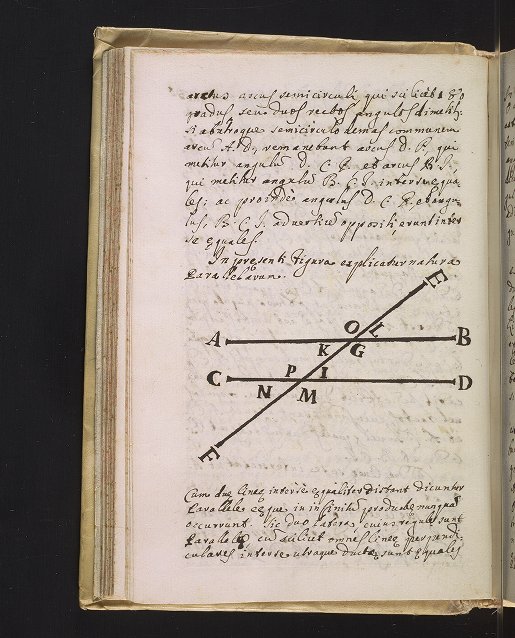 arcus semicirculi qui scilicet 180
gradus, seu duos rectos angulos dimetitur
si ab utroque semicirculo demas communem
arcu A. D, remanebunt arcus D. P. qui
metitur angulu D. C. P. et arcus B. I.
qui metitur angulu B. C. I. inter se equa
les; ac proinde angulus D. C. P. et angu
lus, B. C. I. ad verticu oppositi erunt inter
se equales.
In presenti figura explicatur natura
Parallelarum.
E
O L
A B
K G
P I
C D
N M
F
Cum due linee inter se equaliter distant dicuntur
Parallele eque in infinitu producte nunquã
occurrunt. Sic duo latera cuius regule sunt
Parallela, cu scilicet omnes linee perpendi
culares inter se utraque ducte sunt equales